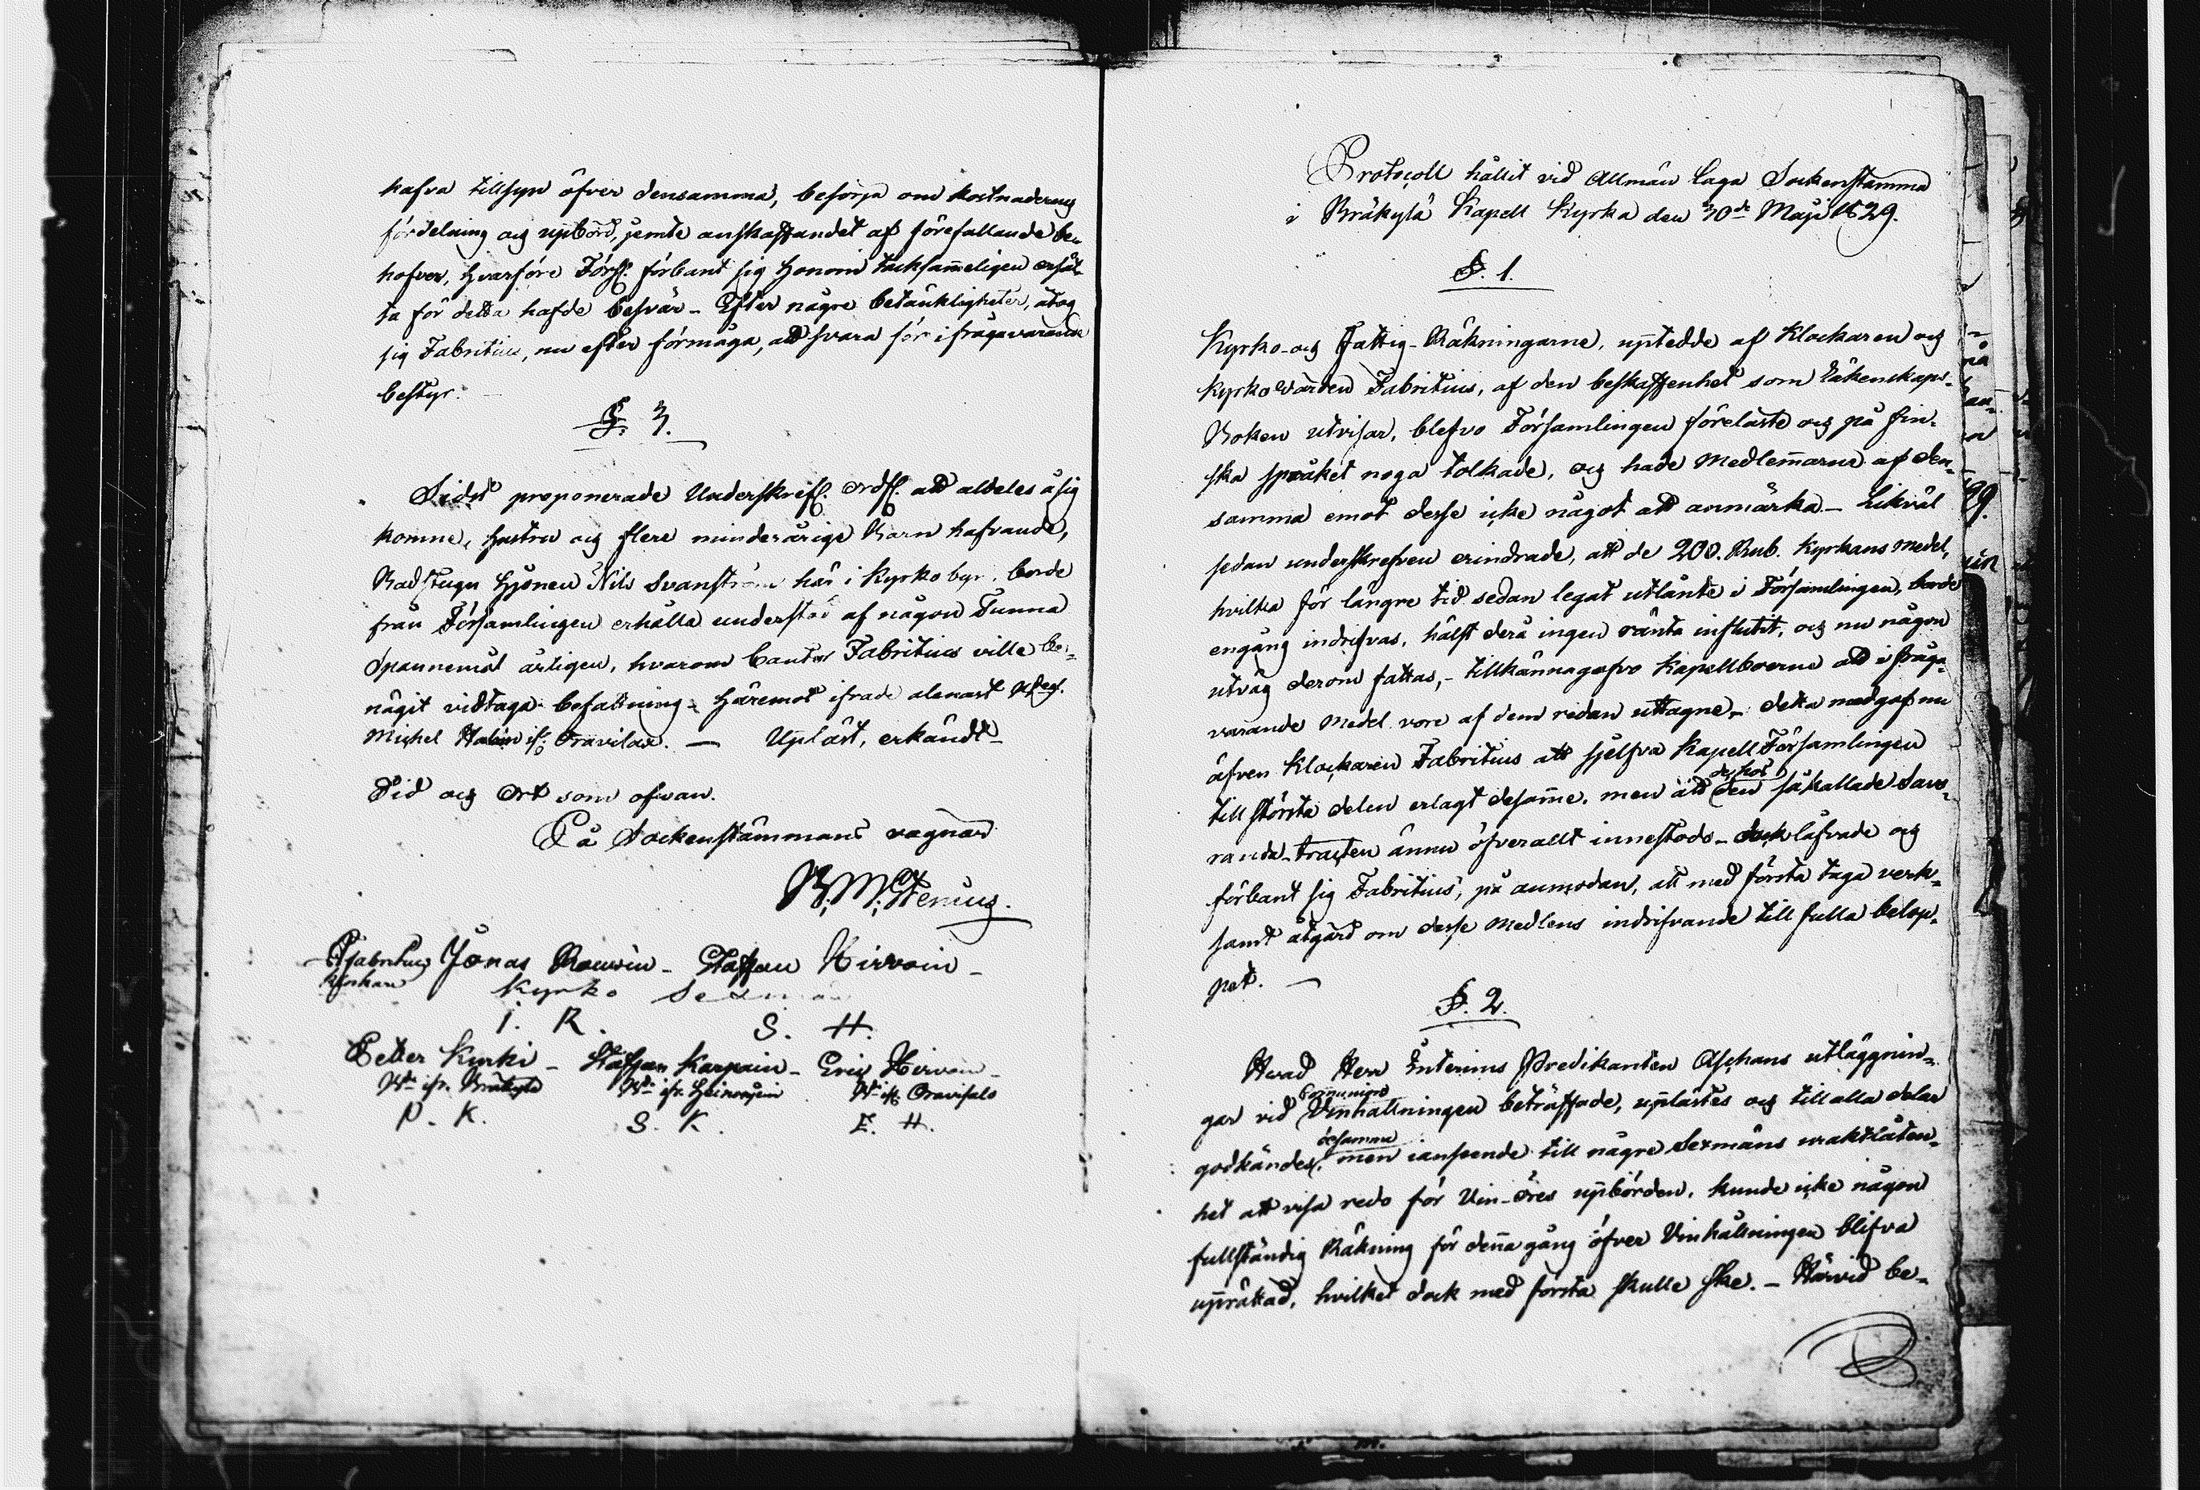 hafva tillsyn öfver densamma, besörja om kostnadernes
fördelning och upbörd, jemte anskaffandet af förefallande be-
hofver, hvarföre Förs. förbant sig honom tacksameligen ersät-
ta för detta hafde besvär - Efter några betänkligheter, åtog
sig Fabritius, nu efter förmåga, att svara för ifrågavarande
bestyr.
§. 3.
Sidst proponerade Underskrefs. ordf. att aldeles åsig
komne, hustru och flere minderårige Barn hafvande,
Badstugu hjonen Nils Svanström här i Kyrko byn, borde
från Församlingen erhålla understöd af någon Tunna
Spannemål årligen, hvarom Cantor Fabritius ville be-
nägit vidtaga befattning - häremot ifrade alenast
Michel Oravilax. — Upläst, erkändt -
Tid och Ort som ofwan.
På Sockenstämmans vägnar
B: M: Stenius.
Fabritius Jonas Rouvin - Staffan Hirvoin -
Klockare Kyrko Sexmän
I. R. S. H.
Petter Kyrki - Staffan Karpain - Eric Hirvoin -
Bräkylä Oravisalo
P. K. S. K. E. H.
Protocoll hållit vid Allmän Laga Sockenstamma
i Bräkylä Kapell Kyrka den 30de Maji 1829.
§. 1.
Kyrko- och Fattig-Räkningarne, uptedde af Klockaren och
kyrkovärden Fabritius, af den beskaffenhet som Räkenskaps-
Boken utvisar, blefvo Församlingen föreläste och på fin-
ska språket noga tolkade, och hade Medlemarne af den-
samma emot desse icke något att anmärka - Likväl
sedan underskrefven erindrade, att de 200. Rub. Kyrkans medel,
hvilka för längre tid sedan legat utlånte i Församlingen, borde
engång indrifvas, hälst derå ingen ränta influtit, och nu någon
utväg derom fattas, - tillkännagofvo Kapellboerne att ifråga-
varande Medel vore af dem redan uttagne - detta medgaf nu
äfven Klockaren Fabritius att sjelfva Kapell Församlingen
till största delen erlagt desamme, men att den såkallade Sava-
randa-tracten ännu öfverallt innestodo - dock låfvade och
förbant sig Fabritius, på anmodan, att med första taga verk-
samt åtgärd om desse Medlens indrifvande till fulla belop-
pet. —
§. 2.
Hvad Herr Interims Predikanten Aschans utläggnin-
gar vid Communions
Vinhållningen beträffade, uplästes och till alla delar
godkändes desamma, men i anseende till några Sexmäns uraktlåten-
het att visa redo för Vin-öres upbörden, kunde icke någon
fullständig Räkning för denna gång öfver Vinhållningen blifva
uprättad, hvilket dock med första skulle ske. - Härvid be-